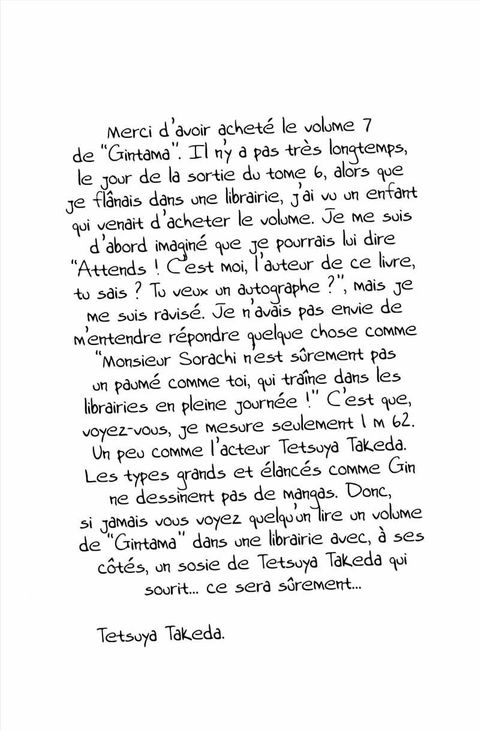 Merci d'avoir acheté le volume 7
de "Gintama". Il n'y a pas très longtemps,
le jour de la sortie du tome 6, alors que
je flânais dans une librairie, j'ai vu un enfant
qui venait d'acheter le volume. Je me suis
d'abord imaginé que je pourrais lui dire
"Attends ! C'est moi, l'auteur de ce livre,
tu sais ? Tu veux un autographe ?", mais je
me suis ravisé. Je n'avais pas envie de
m'entendre répondre quelque chose comme
"Monsieur Sorachi n'est sûrement pas
un paumé comme toi, qui traîne dans les
librairies en pleine journée !" C'est que,
voyez-vous, je mesure seulement 1 m 62.
Un peu comme l'acteur Tetsuya Takeda.
Les types grands et élancés comme Gin
ne dessinent pas de mangas. Donc,
si jamais vous voyez quelqu'un lire un volume
de "Gintama" dans une librairie avec, à ses
côtés, un sosie de Tetsuya Takeda qui
sourit... ce sera sûrement...
Tetsuya Takeda.